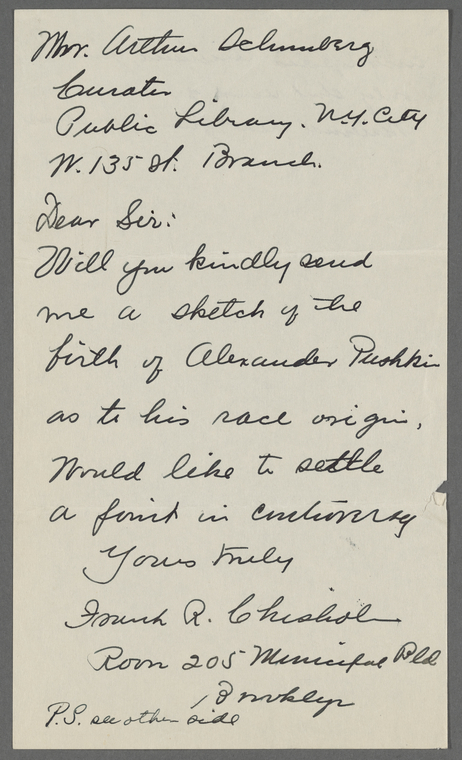 Mr. Arthur Schomberg
Curator
Public Library. N.Y. City
W. 135 St. Branch.
Dear Sir:
Will you kindly send
me a sketch of the
birth of Alexander Pushkin
as to his race origin.
Would like to settle
a point in controversy
Yours truly
Frank R. Chisholm
Room 205 Municipal Bld
Brooklyn
P.S. see other side